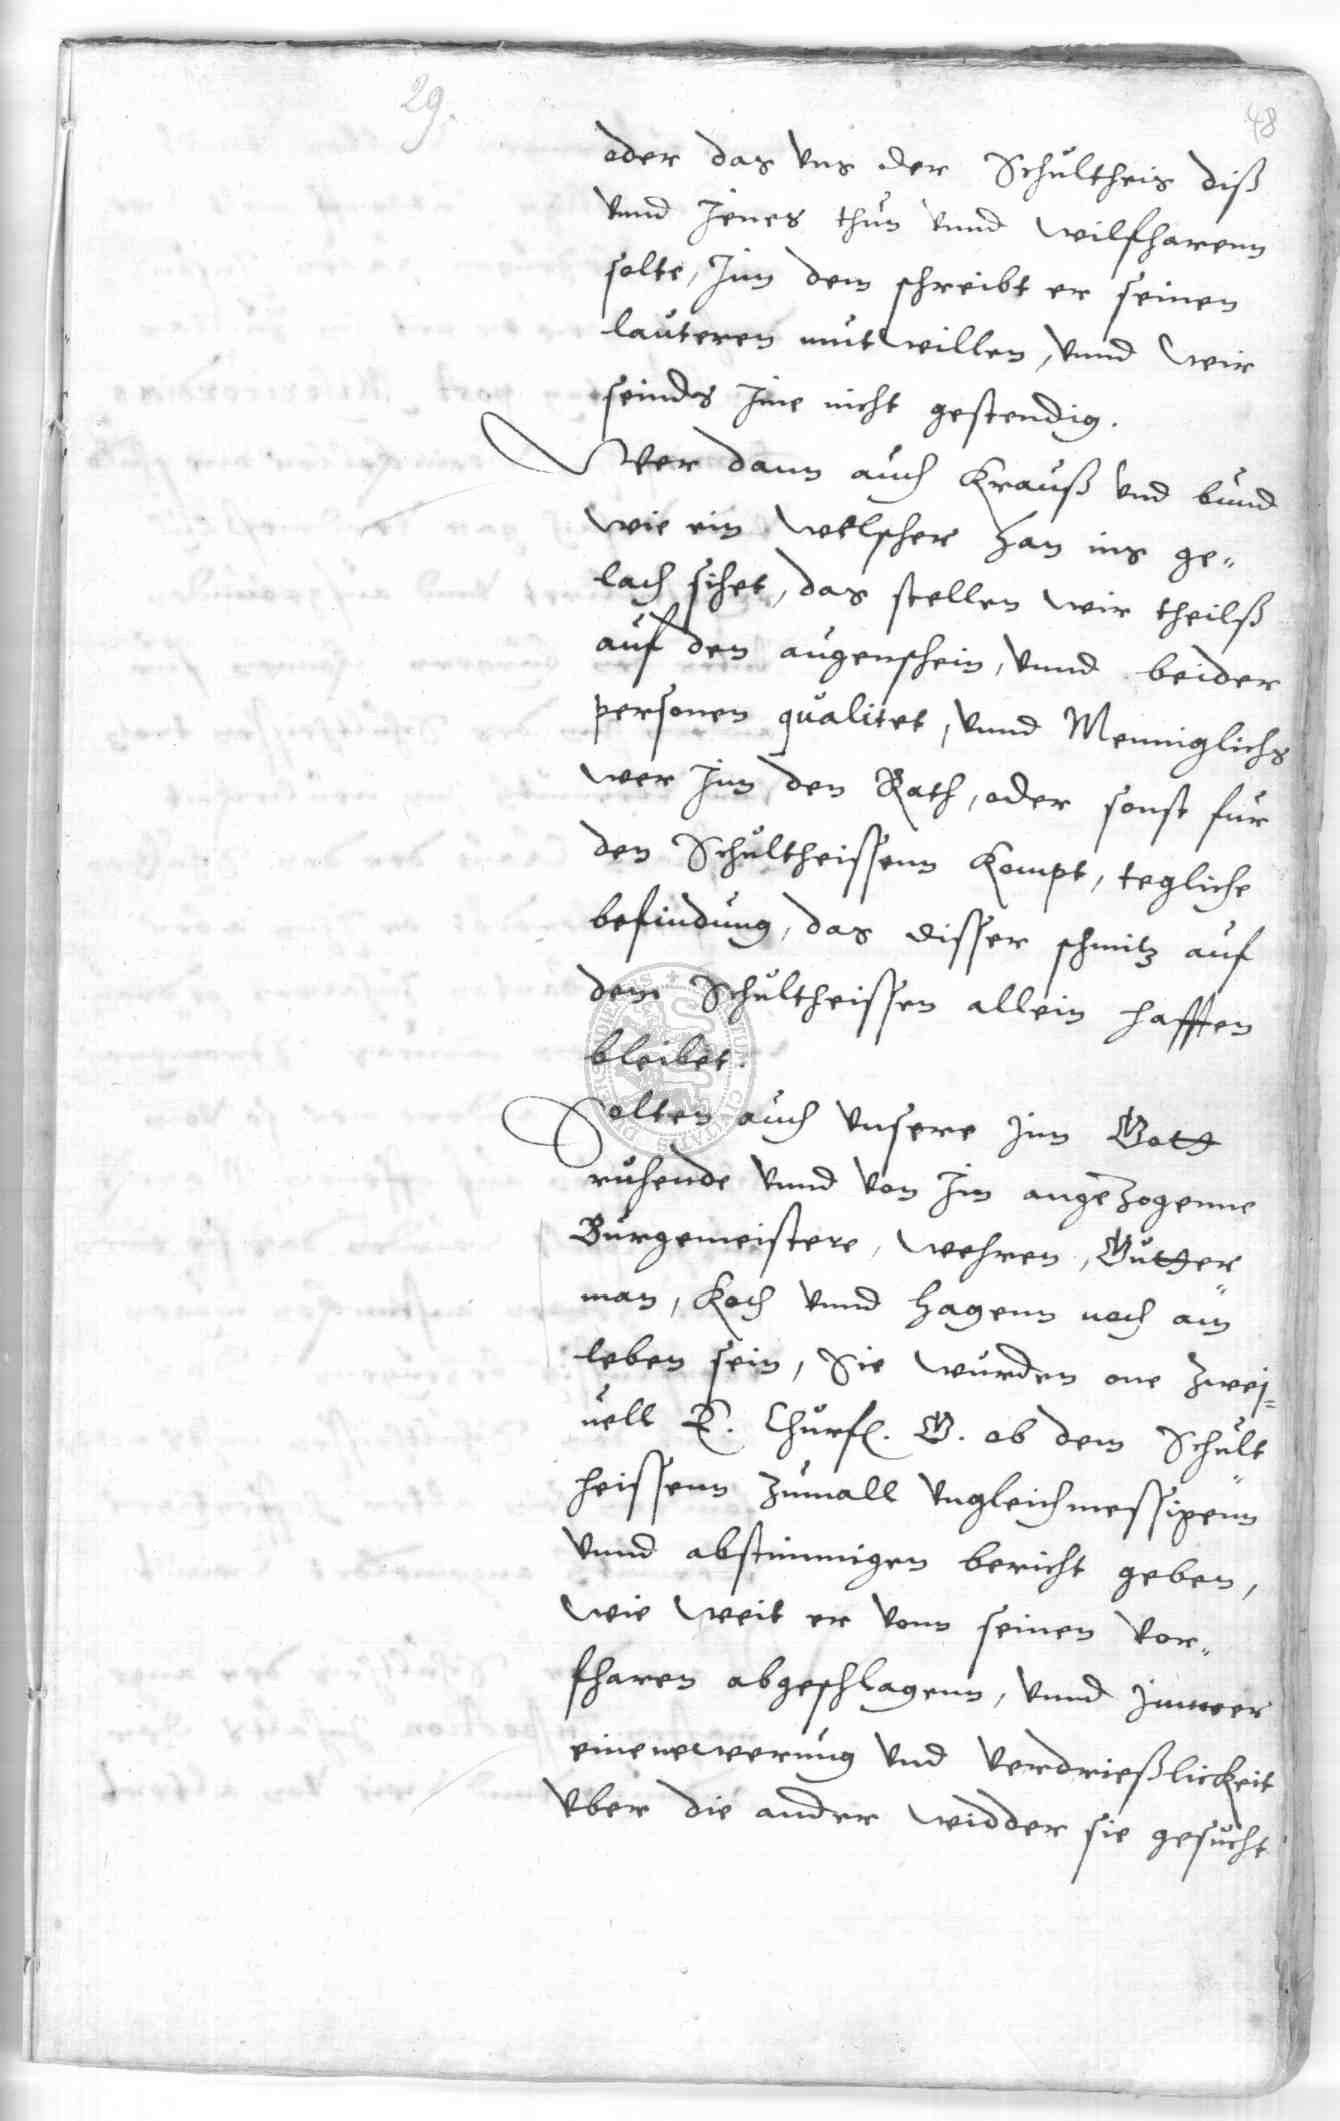 29.
48
oder das vns der Schultheis diß
vnnd Jenes thun vnnd wilfharenn
solte, Inn dem schreibt er seinen
lauteren mutwillen, vnnd wir
seindts Ime nicht gestendig.
Wer dann auch Krauß vnd bund
wie ein welscher Han ins ge-
lach sihet, das stellen wir theilß
auf den augenschein, vnnd beider
personen qualitet, vnnd Menniglichs
wer Inn den Rath, oder sonst für
den Schultheissenn kompt, tegliche
befindung, das disser schmitz auf
dem Schultheissen allein hafften
bleibet.
Solten auch vnsere inn Gott
ruhende vnnd von Im angezogenne
Burgemeistere, Wehren, Gutter
man, Koch vnnd Hagenn noch am
leben sein, Sie wurden one zwei-
uell E. Churfl. G. ob dem Schult
heissenn zumall vngleichmessigenn
vnnd abstimmigen bericht geben,
wie weit er vonn seinen vor-
fharen abgeschlagenn, vnnd Immer
eine newerung vnd verdrießlickeit
vber die ander widder sie gesucht